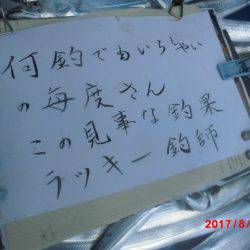 何釣でもいらしゃい
の毎度さん
この見事な釣果
ラッキー釣師
2017/8/